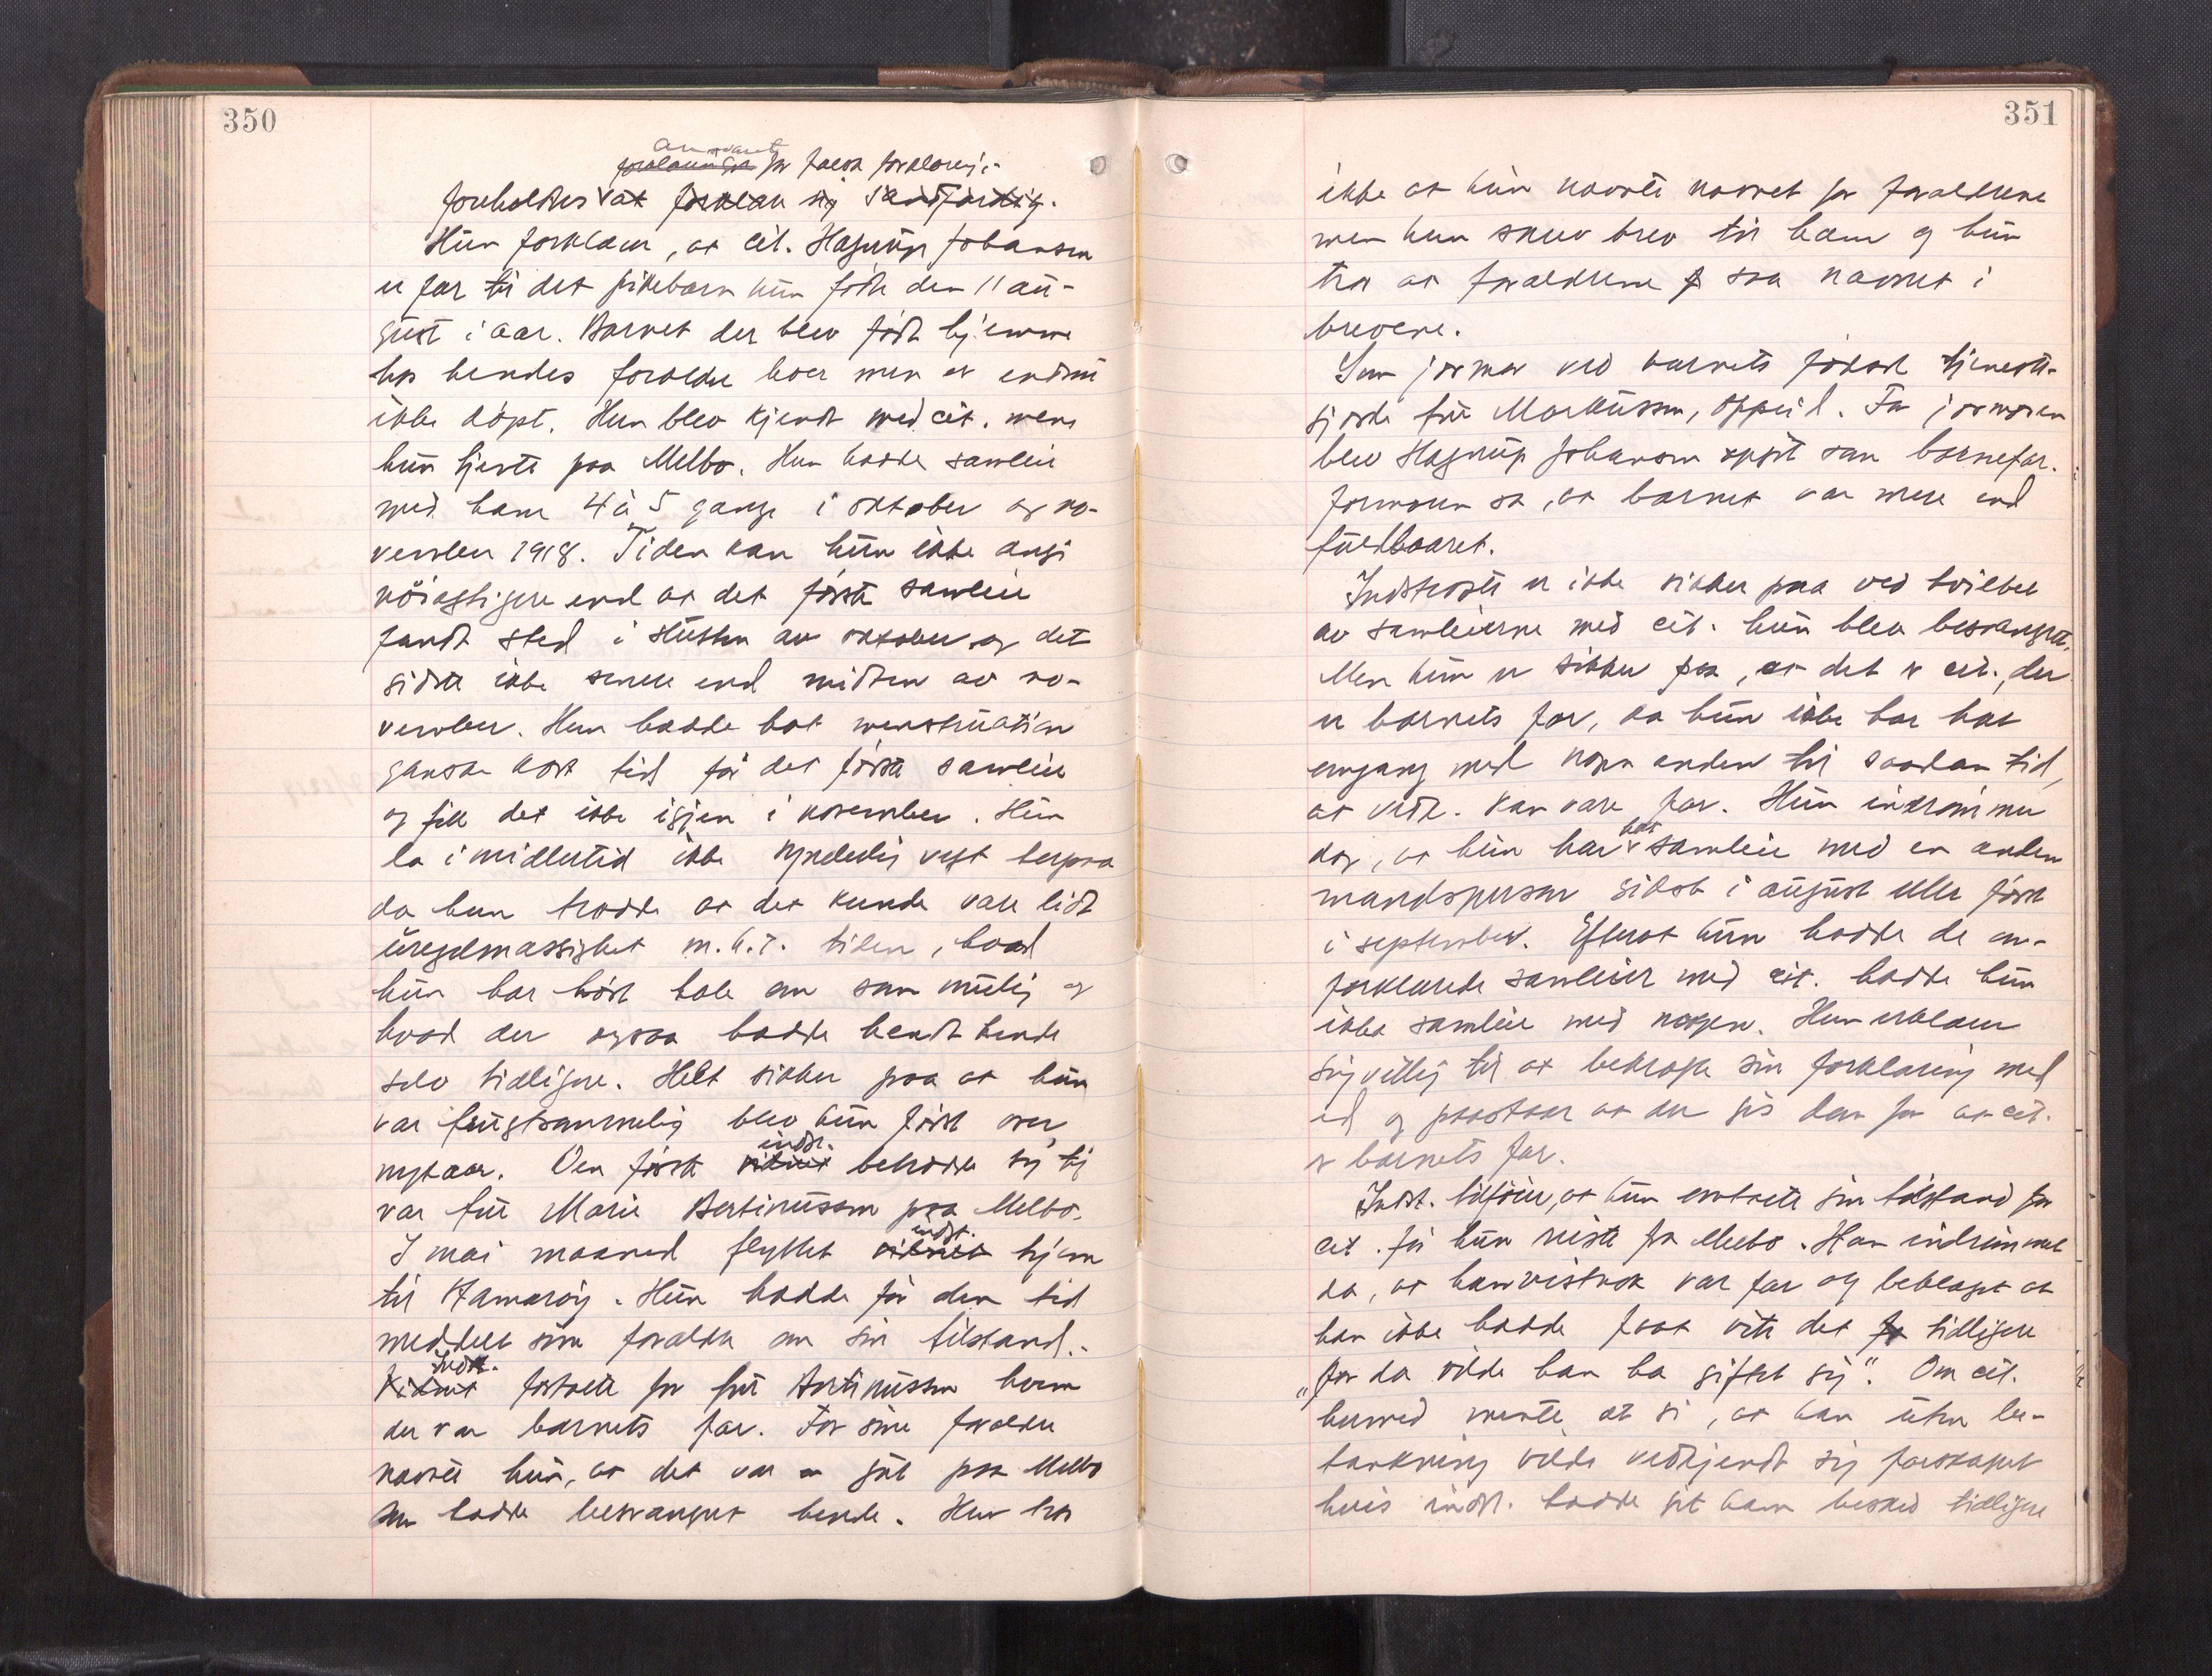 350
ansvaret
forklaringen for falsk forklaring.-
foreholdtes at forklare sig sandfærdig.
Hun forklarer, at cit. Hagrup Johansen
er far til det pikebarn hun fødte den 11 au-
gust i aar. Barnet der blev født hjemme
hos hendes forældre lever men er endnu
ikke døpt. Hun blev kjendt med cit. mens
hun tjente paa Melbo. Hun hadde samleie
med ham 4 à 5 gange i oktober og no-
vember 1918. Tiden kan hun ikke angi
nøiagtigere end at det første samleie
fandt sted i slutten av oktober og det
sidste ikke senere end midten av no-
vember. Hun hadde hat menstruation
ganske kort tid før det første samleie
og fik det ikke igjen i november. Hun
la imidlertid ikke synderlig vegt herpaa
da hun trodde at det kunde være lidt
uregelmæssighet m.h.t. tiden, hvad
hun har hørt tale om som mulig og
hvad der ogsaa hadde hendt hende
selv tidligere. Helt sikker paa at hun
var frugtsommelig blev hun først over
nytaar. Den første vidnet indst. betrodde sig til
var fru Marie Bertinussen paa Melbo.
I mai maaned flyttet vidnet indst. hjem
til Hamarøy. Hun hadde før den tid
meddelt sine forældre om sin tilstand.-
Vidnet Indst. fortalte for fru Bertinussen hvem
der var barnets far. For sine forældre
nævnte hun, at det var en gut paa Melbo
som hadde besvangret hende. Hun tror
351
ikke at hun nævnte navnet for forældrene
men hun skrev brev til ham og hun
tror at forældrene saa navnet i
brevene.
Som jormor ved barnets fødsel tjeneste-
gjorde fru Markussen, Oppeid. For jormoren
blev Hagrup Johansen opgit som barnefar.
Jormoren sa, at barnet var mere end
fuldbaaret.
Indstevnte er ikke sikker paa ved hvilket
av samleierne med cit. hun blev besvangret.
Men hun er sikker paa, at det er cit., der
er barnets far, da hun ikke har hat
omgang med nogen anden til saadan tid,
at vedk. kan være far. Hun indrømmer
dog, at hun har hat samleie med en anden
mandsperson sidst i august eller først
i september. Efterat hun hadde de om-
forklarede samleier med cit. hadde hun
ikke samleie med nogen. Hun erklærer
sig villig til at bekræfte sin forklaring med
ed og paastaar at der gis dom for at cit.
er barnets far.
Indst. tilføier, at hun omtalte sin tilstand for
cit. før hun reiste fra Melbo. Han indrømmet
da, at han vistnok var far og beklaget at
han ikke hadde faat vite det tidligere
"for da vilde han ha giftet sig". Om cit.
hermed mente at si, at han uten be-
tænkning vilde vedkjendt sig farskapet
hvis indst. hadde git ham besked tidligere